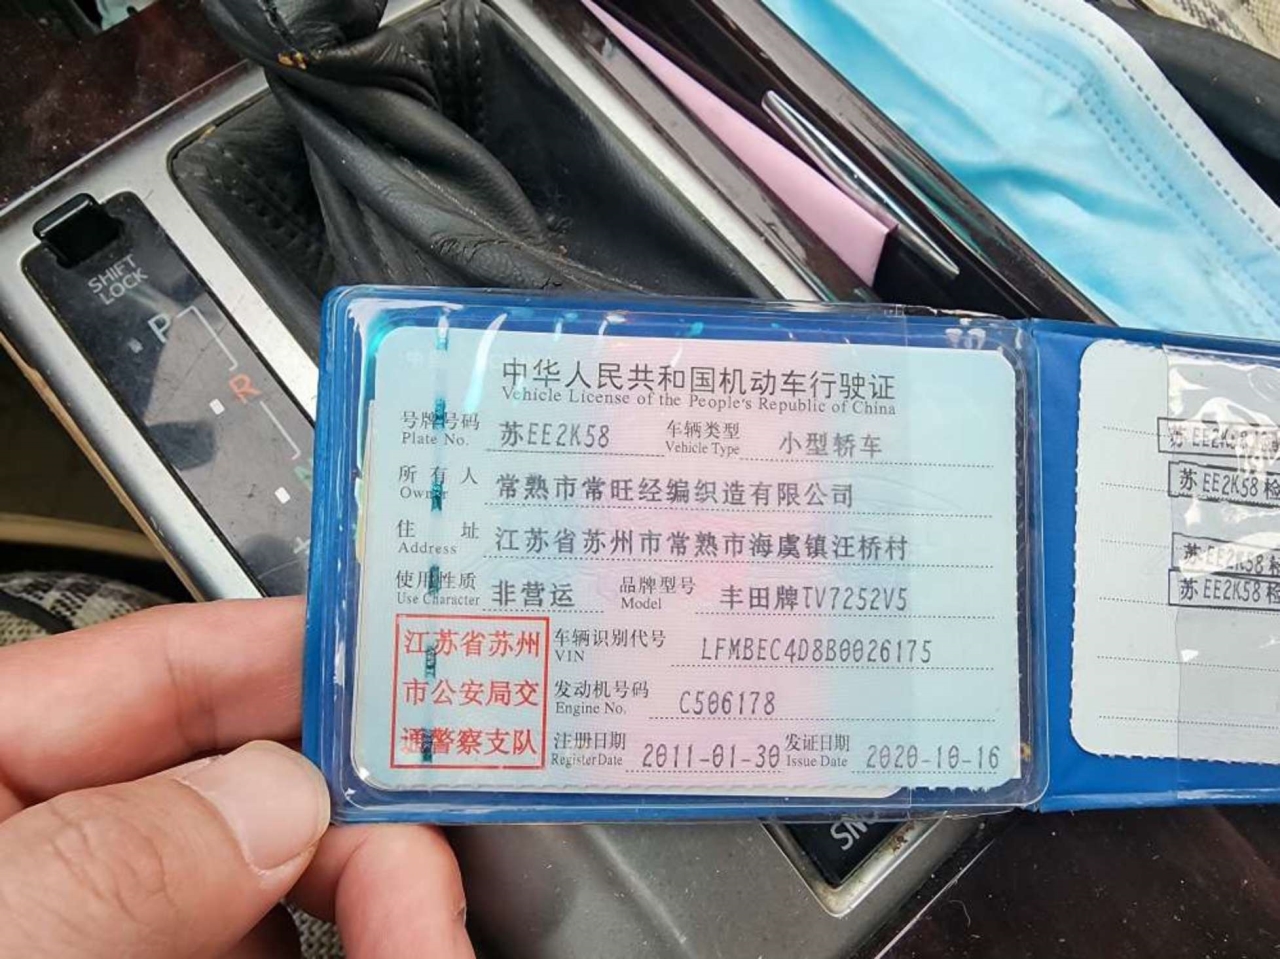 SHIFT
LOCK
P
R
N
+
中华人民共和国机动车行驶证
Vehicle License of the People's Republic of China
号牌号码 苏EE2K58 车辆类型 小型轿车
Plate No. Vehicle Type
所有人 常熟市常旺经编织造有限公司
Owner
住址 江苏省苏州市常熟市海虞镇汪桥村
Address
使用性质 非营运 品牌型号 丰田牌TV7252V5
Use Character Model
江苏省苏州
市公安局交
通警察支队
车辆识别代号 LFMBEC4D8B0026175
VIN
发动机号码 C506178
Engine No.
注册日期 2011-01-30 发证日期 2020-10-16
Register Date Issue Date
苏EE2K58
苏EE2K58检
苏EE2K58检
苏EE2K58检